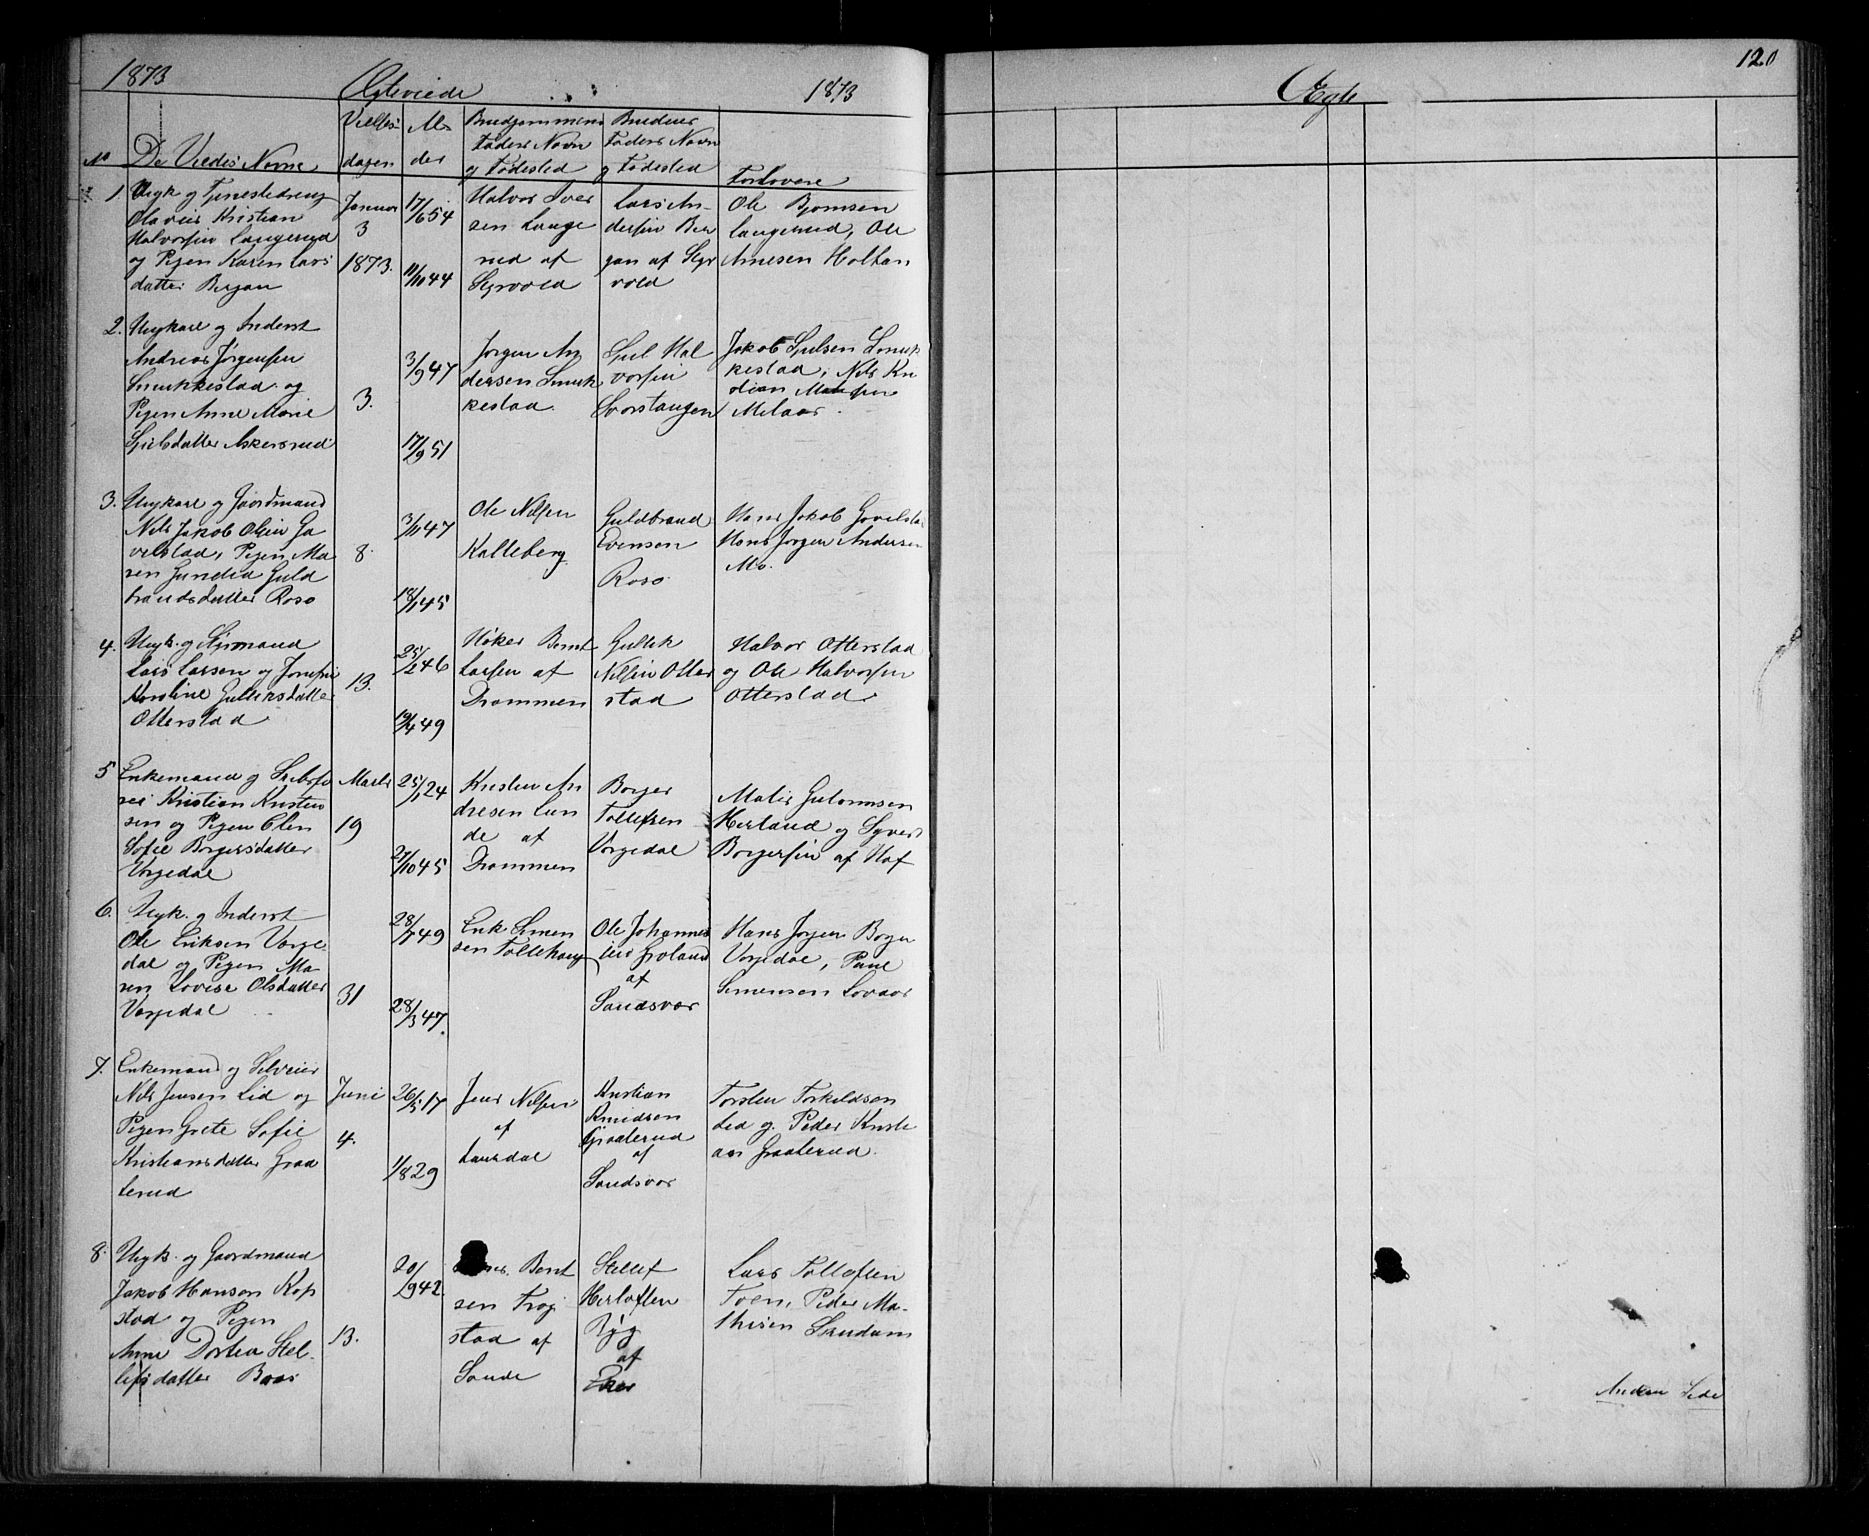 1873 Ægteviede 1873
No De Viedes Navne
Vielses-
dagen
Al-
der
Brudgommens
Faders Navn
og Fødested
Brudens
Faders Navn
og Fødested
Forlovere
1. Ungk og Tjenestedreng
Olaves Kristian
Halvorsen Langerud
og Pigen Karen Lars
datter Bergan
Januar
3
1873.
17/6 54
11/10 44
Halvor Iver
sen Lange
rud af
Lars An-
dersen Ber
gan af
Ole Bjørnsen
Langerud, Ole
Arnesen Holtan
2. Ungkarl og Inderst
Andreas Jørgensen
Smukkestad og
Pigen Anne Marie
Gjulsdatter Askersrud
3.
3/9 47
17/9 51
Jørgen An
dersen Smuk
kestad
Gjul Hal
vorsen
Svorstangen
Jakob Gjulsen Smuk
kestad, Nils Kri
stian
3. Ungkarl og Gaardmand
Nils Jakob Olsen Ga
velstad, Pigen Ma
ren Gunelia Guld
brandsdatter Roso
8.
3/11 47
18/1 45
Ole Nilsen
Kalleberg
Guldbrand
Evensen
Roso
Hans Jakob Gavelstad
Hans Jørgen Andersen
Mo.
4. Ungk. og Styrmand
Lars Larsen og Josefine
Karoline Gulliksdatter
Otterstad
13.
25/2 46
19/4 49
Høker Bernt
Larsen af
Drammen
Gullik
Nilsen Otter
stad
Halvor Otterstad
og Ole Halvorsen
Otterstad
5 Enkemand og
Kristian Kristen
sen og Pigen Elen
Sofie Borgersdatter
Vorgedal
Marts
19
25/1 24
27/10 45
Kristen An
dresen Lun
de af
Drammen
Borger
Tollefsen
Vorgedal
Matis Gutormsen
Herland og Syver
Borgersen af Haf
6. Ungk. og Inderst
Ole Eriksen Vorge
dal og Pigen Ma
ren Lovise Olsdatter
Vorgedal
31
28/7 49
28/3 47.
Erik Simen
sen Tollehaug
Ole Johannes
sen Groland
af
Sandsvær
Hans Jørgen Borger
Vorgedal, Paul
Simensen Lovaas
7. Enkemand og Selveier
Nils Jensen Lid og
Pigen Grete Sofie
Kristiansdatter Graa
terud
Juni
4.
26/5 17
1/8 29
Jens Nilsen
af
Laurdal
Kristian
Knudsen
Graaterud
af
Sandsvær
Torsten Torkildsen
Lid og Peder Kristi
an Graaterud.
8. Ungk. og Gaardmand
Jakob Hansen Kop
stad og Pigen
Anne Dortea Stel-
lefsdatter Baas
13.
20/9 42.
Bent
sen Trog
stad af
Sande
Stellef
Herlofsen
Ryg
af
Eker
Lars Tollefsen
Toen, Peder Ma-
thisen Skudam
Ægte
120